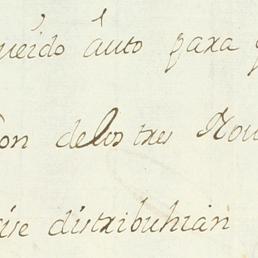 ueido áuto para
on delos tres Nou
ise distribuhian